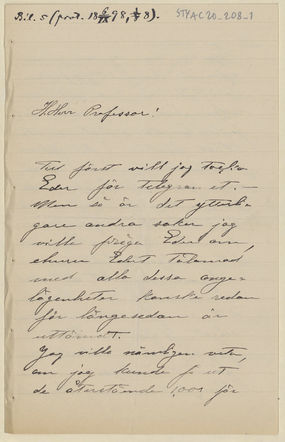 Bil. 5 (prot. 18 6/IX 98, § 8).
STYAC20_208_1
H. Herr Professor!
Till först vill jag tacka
Eder för telegrammet. —
Men så är det ytterli-
gare andra saker jag
ville fråga Eder om,
ehuru Edert tålamod
med alla dessa ange-
lägenheter kanske redan
för längesedan är
uttömdt.
Jag ville nämligen veta,
om jag kunde få ut
de återstående 1,000 för